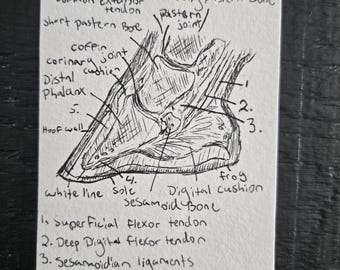 common extensor tendon
Pastern joint
Pastern Bone
short pastern Bone
coffin
corinary joint
Distal cushion
phalanx
5.
Hoof wall
1
2.
3.
4.
white line
sole
sesamoid Bone
Digital cushion
frog
1. superficial flexor tendon
2. Deep Digital flexor tendon
3. sesamoidian ligaments